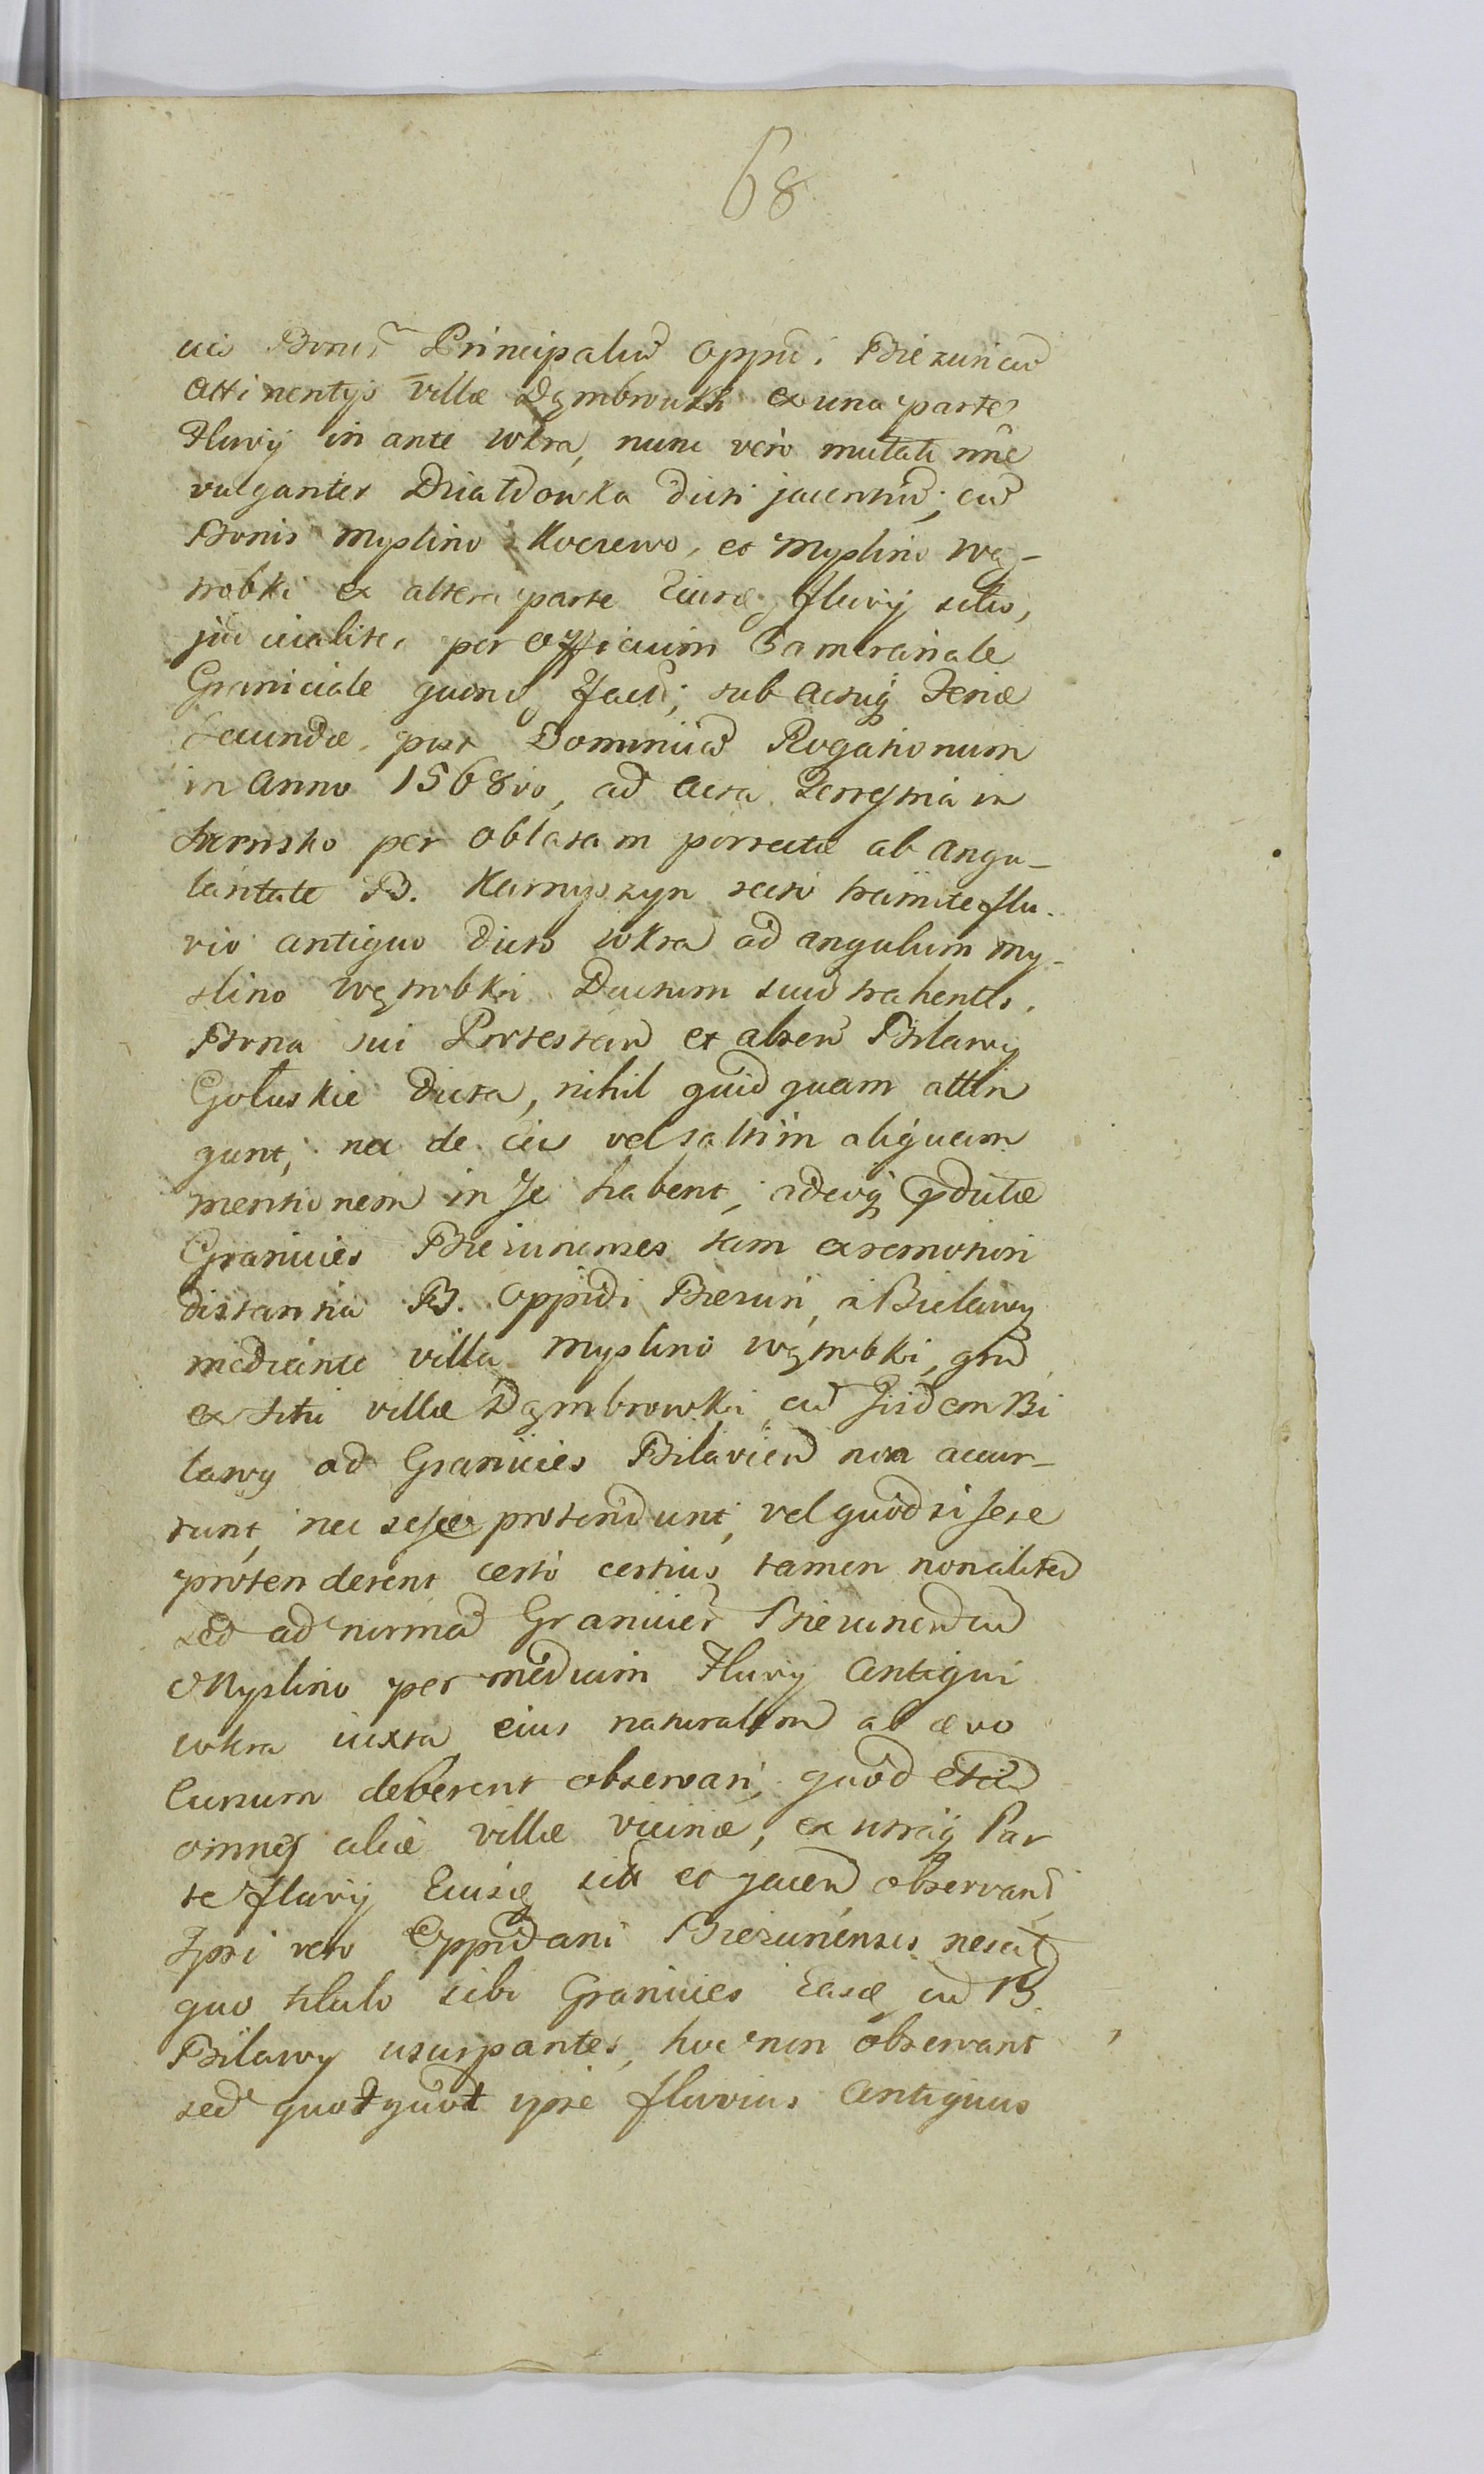 68
Bonor Principaliu Oppidi Biezun cu
Attinentijs villæ Dąmbrowki ex una parte
Fluvij in ante Wkra, nunc vero mutato nne
vulgariter Działdowka dicti jacentiu; cu
Bonis Myslino Kocewo, et Myslino Wą-
trobki ex altera parte Eiusdę fluvij sitis,
judicialiter per Officium Camerariale
Graniciale quond fact; sub Actuq Feriæ
Secundæ post Dominica Rogationum
in Anno 1568vo, ad Acta Terrestria in
per Oblatam porrectæ ab angu-
laritate B. Karnyszyn recto tramite flu-
vio antiquo dicto Wkra ad angulum My-
slino Wątrobki Ductum suu trahentes,
Bona sui Protestan et alxen Bilawy
Gołuskie dicta, nihil quidquam attin
gunt, nec de eis vel saltim aliquam
mentionem in se habent, adeoq pdictæ
Granicies Biezunenses tam ex remotiori
distantia B. Oppidi Biezun, a Bielawy
mediante villa Myslino Wątrobki, qm
ex situ villæ Dąmbrowki cu Jisdem Bi
lawy ad Granicies Bilavien non accur-
runt, nec sese protendunt, vel quod si sese
protenderent certo certius, tamen non aliter
sed ad norma Granicier Biezunen cu
Myslino per medium Fluvij Antiqui
Wkra iuxta eius naturalem ab ævo
Cursum deberent observari, quod etia
omnes aliæ villæ vicinæ, ex utraq Par
te fluvij Eiusdę sitæ et jacen observant,
Ipsi vero Oppidani Biezunenses nescit
quo titulo sibi Granicies Easdę cu B.
Bilawy usurpantes, hoc non observant
sed quotquot ipse fluvius Antiquus